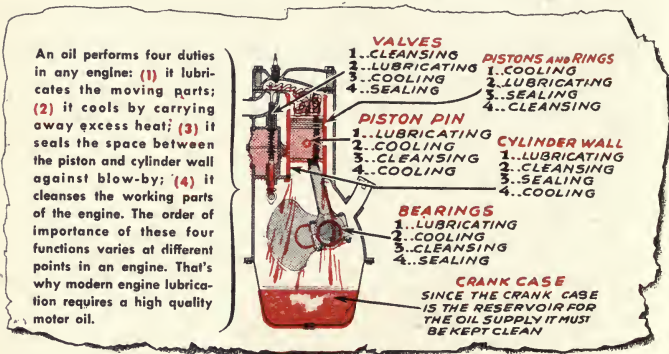 An oil performs four duties
in any engine: (1) it lubri-
cates the moving parts;
(2) it cools by carrying
away excess heat; (3) it
seals the space between
the piston and cylinder wall
against blow-by; (4) it
cleanses the working parts
of the engine. The order of
importance of these four
functions varies at different
points in an engine. That's
why modern engine lubrica-
tion requires a high quality
motor oil.
VALVES
1..CLEANSING
2..LUBRICATING
3..COOLING
4..SEALING
PISTONS AND RINGS
1..COOLING
2..LUBRICATING
3..SEALING
4..CLEANSING
PISTON PIN
1..LUBRICATING
2..COOLING
3..CLEANSING
4..COOLING
CYLINDER WALL
1..LUBRICATING
2..CLEANSING
3..SEALING
4..COOLING
BEARINGS
1..LUBRICATING
2..COOLING
3..CLEANSING
4..SEALING
CRANK CASE
SINCE THE CRANK CASE
IS THE RESERVOIR FOR
THE OIL SUPPLY IT MUST
BE KEPT CLEAN